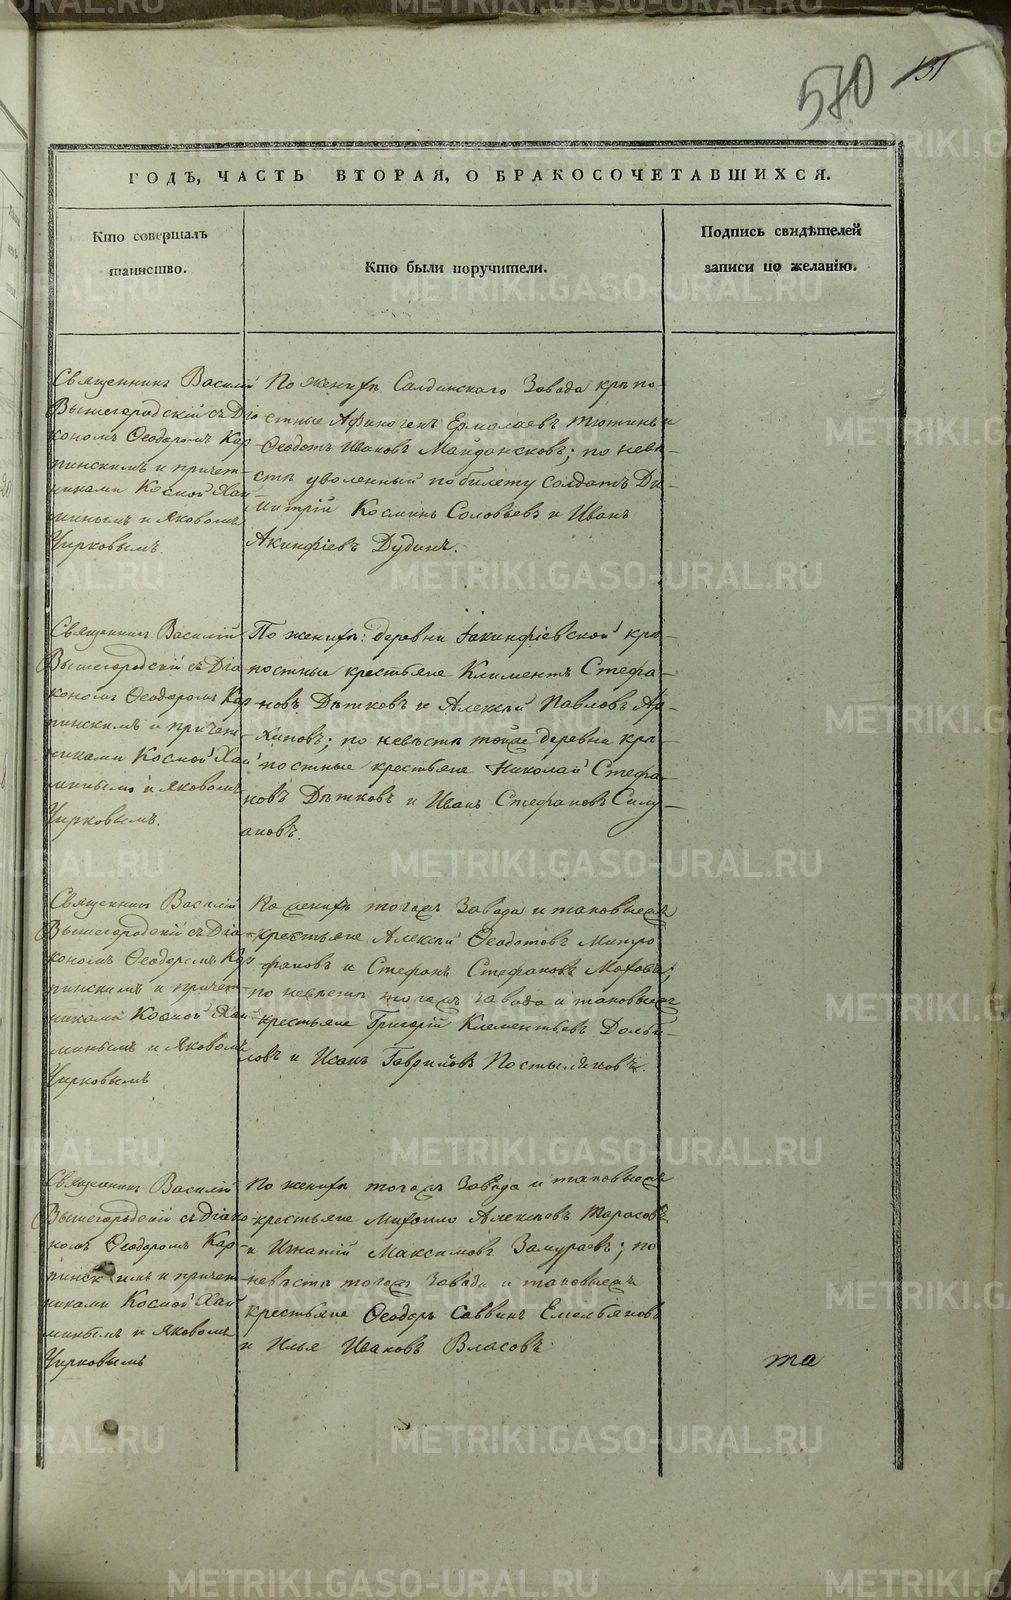 570 131
ГОДЪ, ЧАСТЬ ВТОРАЯ, О БРАКОСОЧЕТАВШИХСЯ.
Кто совершалъ
таинство.
Кто были поручители.
Подпись свидѣтелей
записи по желанію.
Священникъ Василій
Вышегородскій съ Діа
кономъ Ѳеодоромъ Кар
пинскимъ и причет-
никами Космой Хай-
минымъ и Яковомъ
Чирковымъ.
По женихѣ Салдинскаго Завода крѣпо-
стные Афиногенъ Ермолаевъ Тютинъ и
Ѳеодотъ Ивановъ Майдансковъ; по невѣ-
стѣ уволенный по билету солдатъ Ди-
митрій Косминъ Соловьевъ и Иванъ
Акинфіевъ Дудинъ.
Священникъ Василій
Вышегородскій съ Діа
кономъ Ѳеодоромъ Кар
пинскимъ и причет-
никами Космой Хай
минымъ и Яковомъ
Чирковымъ.
По женихѣ: деревни Іакинфіевской крѣ-
постные крестьяне Климентъ Стефа-
новъ Дѣтковъ и Алексѣй Павловъ Ар-
хиповъ; по невѣстѣ тойже деревни крѣ-
постные крестьяне Николай Стефа-
новъ Дѣтковъ и Иванъ Стефановъ Силу-
ановъ.
Священникъ Василій
Вышегородскій съ Діа-
кономъ Ѳеодоромъ Кар
пинскимъ и причет-
никами Космой Хай-
минымъ и Яковомъ
Чирковымъ
По женихѣ тогожъ Завода и таковыежъ
крестьяне Алексѣй Ѳеодотовъ Митро
фановъ и Стефанъ Стефановъ Маховъ;
по невѣстѣ тогожъ завода и таковыежъ
крестьяне Григорій Клементьевъ Долби
ловъ и Исакъ Гавриловъ Постыляковъ.
Священникъ Василій
Вышегородскій съ Діако-
номъ Ѳеодоромъ Кар-
пинскимъ и причет
никами Космой Хай
минымъ и Яковомъ
Чирковымъ
По женихѣ тогожъ Завода и таковыежъ
крестьяне Михаило Алексѣевъ Тарасовъ
и Игнатій Максимовъ Замураевъ; по
невѣстѣ тогожъ Завода и таковыежъ
крестьяне Ѳеодоръ Саввинъ Емельяновъ
и Илья Ивановъ Власовъ
та
METRIKI.GASO-URAL.RU